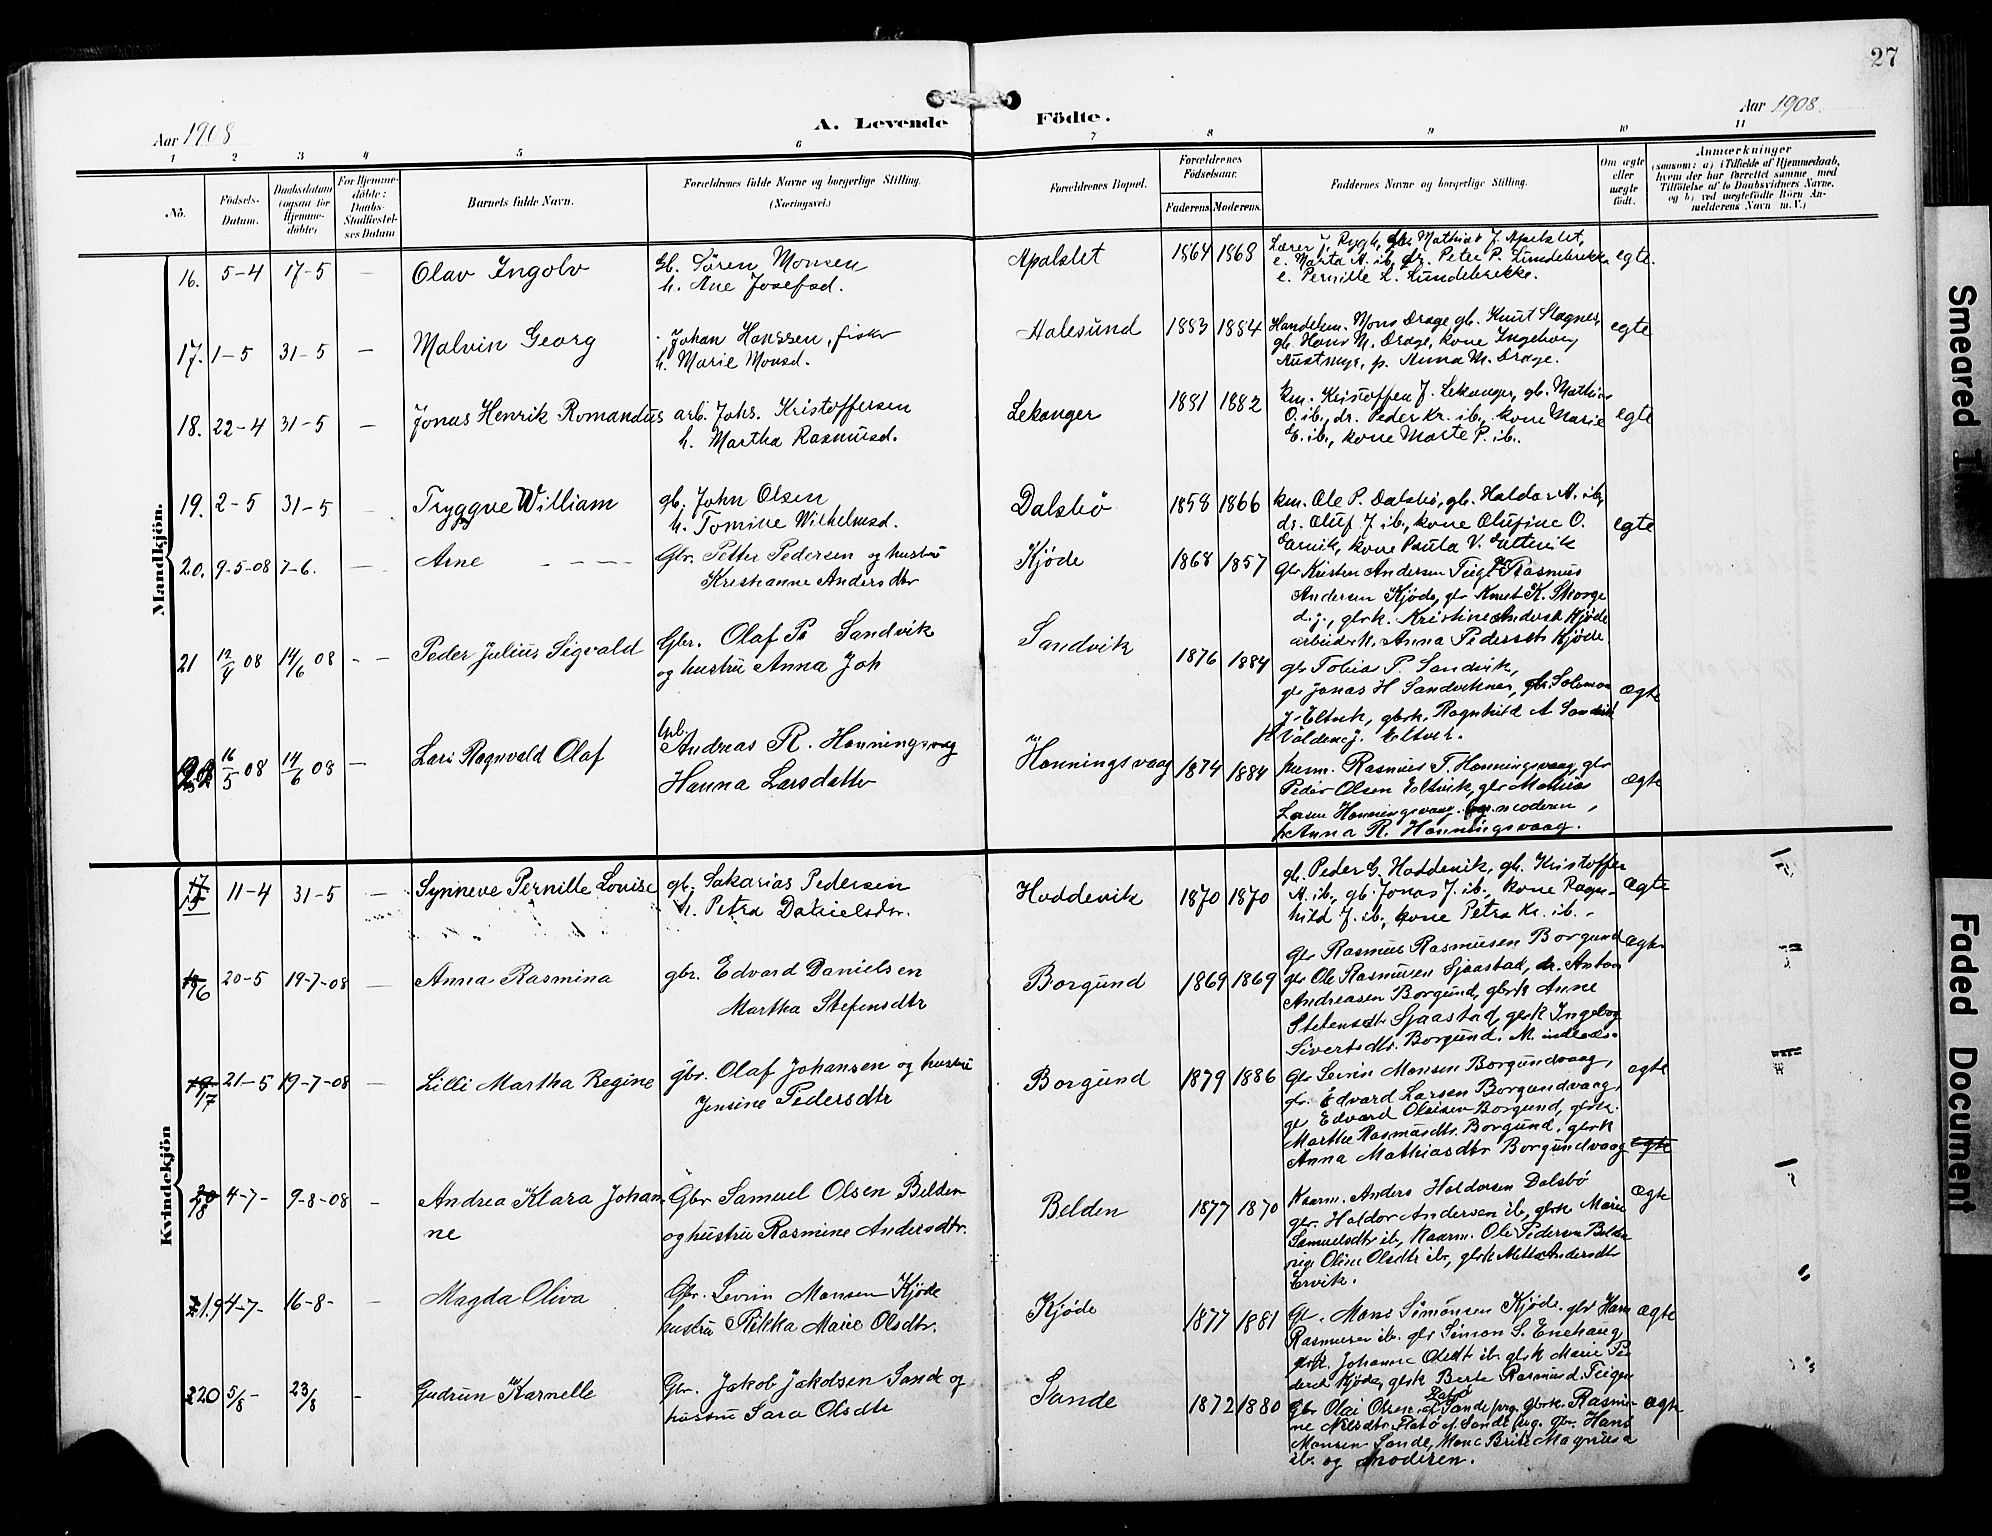 27
Aar 1908
A. Levende Födte.
Aar 1908.
1 2 3 4 5 6 7 8 9 10 11
No.
Födsels-Datum.
Daabsdatum (ogsaa for Hjemme-döbte)
For Hjemme-döbte: Daabs-Stadfæstel-ses Datum
Barnets fulde Navn.
Forældrenes fulde Navne og borgerlige Stilling.
(Næringsvei.)
Forældrenes Bopæl.
Forældrenes Födselsaar.
Faderens Moderens.
Faddernes Navne og borgerlige Stilling.
Om ægte eller uægte født.
Anmærkninger
(saasom: a) i Tilfælde af Hjemmedaab,
hvem der har forrettet samme, med
Tilföielse af to Daabsvidners Navne,
og b) ved uægtefödte Börn An-
melderens Navn m. V.)
Mandkjön.
16. 5-4 17-5 — Olav Ingolv
gb. Sören Monsen
h. Ane Josefsd.
Apalset 1864 1868
Lærer J. Rygh, gb. Mathias J. Apalset,
e. Marta A. ib, dr. Peter P. Lundebrekke
e. Pernille L. Lundebrekke.
egte.
17. 1-5 31-5 — Malvin Georg
Johan Hanssen, fisker
h. Marie Monsd.
Aalesund 1883 1884
Handelsm. Mons Drage gb. Knut Stagnes,
gb. Hans M. Drage, kone Ingeborg
Austmyr, p. Anna M. Drage.
egte
18. 22-4 31-5 — Jonas Henrik Romandus
arb. Johs. Kristoffersen
h. Martha Rasmusd.
Lekanger 1881 1882
km. Kristoffen J. Lekanger, gb. Mathias
O. ib., dr. Peder Kr. ib., kone Marie
E. ib., kone Marte P. ib.
egte
19. 2-5 31-5 Tryggve William
gb. John Olsen
h. Tomine Wilhelmsd.
Dalsbø 1858 1866
km. Ole P. Dalsbø, gb. Haldor A. ib,
dr. Oluf J ib., kone Olufine O.
Ervik, kone Paula V. Eltvik
egte
20. 9-5-08 7-6. — Arne
Gbr. Petter Pedersen og hustru
Kristianne Andersdtr
Kjøde 1868 1857
Gbr Kristen Andersen Teige Rasmus
Andersen Kjøde, gbr Knut K. Skorge
d.y., gbrk. Kristine Andersd Kjøde
arbeidsk. Anna Pedersd Kjøde.
21 12/4 08 14/6 08 - - Peder Julius Sigvald
Gbr. Olaf Ps Sandvik
og hustru Anna Joh
Sandvik 1876 1884
gbr Tobias P. Sandvik,
gb Jonas H Sandviknes, gbr Salomon
J. Eltvik, gbrk. Ragnhild A Sandvik
p Valdene J. Eltvik.
ægte
22 16/5 08 14/6 08 — Lars Ragnvald Olaf
Gbr.
Andreas R. Honningsvaag
Hanna Larsdatter
Honningsvaag 1874 1884
husm. Rasmus T. Honningsvaag, gbr
Peder Olsen Eltvik, gbr Mathias
Larsen Honningsvaag. moderen,
p Anna R. Honningsvaag.
ægte
Kvindekjön
15 11-4 31-5 — Synneve Pernille Louise
gb. Sakarias Pedersen
h. Petra Danielsdtr.
Hoddevik 1870 1870
gb. Peder G. Hoddevik, gb. Kristoffer
A. ib., gb. Jonas J. ib., kone Ragn-
hild J. ib., kone Petra Kr. ib.
ægte
16 20-5 19-7-08 — Anna Rasmina
gbr. Edvard Danielsen
Martha Stefensdtr
Borgund 1869 1869
Gbr Rasmus Rasmusen Borgund
gbr Ole Rasmusen Sjaastad, dr. Anton
Andreasen Borgund, gbrk Anne
Stefensdtr Sjaastad, gbrk Ingeborg
Sivertsdtr. Borgund. M. indleds.
ægte
17 21-5 19-7-08 — Lilli Martha Regine
gbr. Olaf Johansen og hustru
Jensine Pedersdtr
Borgund 1879 1886
Gbr Levrin Monsen Borgundvaag,
gbr. Edvard Larsen Borgundvaag,
gr Edvard Olaisen Borgund, gbrk.
Marthe Rasmusdtr Borgund, gbrk
Anna Mathiasdtr Borgundvaag
ægte
egte
18 4-7- 9-8-08 - Andrea Klara Johan
ne
Gbr Samuel Olsen Belden
og hustru Rasmine Andersdtr.
Belden 1877 1870
Kaarm. Anders Haldorsen Dalsbø
gbr. Haldor Andersen ib, gbrk Marie
Samuelsdtr ib, Kaarm. Ole Pedersen Belden
pige Oline Olsdtr ib, gbrk Mette Andersdtr
Ervik.
Ægte
19 4-7- 16-8- — Magda Oliva
Gbr. Levrin Monsen Kjøde
hustru Rikka Marie Olsdtr.
Kjøde 1877 1881
Gbr. Mons Simonsen Kjøde, gbr Hans
Rasmusen ib. gbr Simon S. Enehaug
gbrk. Johanne Olsdtr ib. gbrk Marie Pe-
dersd Kjøde, gbrk Berte Rasmusd Teigen
ægte
20 5/8- 23/8 - Gudrun Karnelle
Gbr. Jakob Jakobsen Sande og
hustru Sara Olsdtr
Sande 1872 1880
Gbr Olai Olsen Sande prg. gbrk. Rasmi-
ne Nilsdtr. Flatø af Sande prg. gbr. Hans
Monsen Sande, Kone Brite Magnusd
ib. og Moderen.
ægte
Smeared
Faded Document